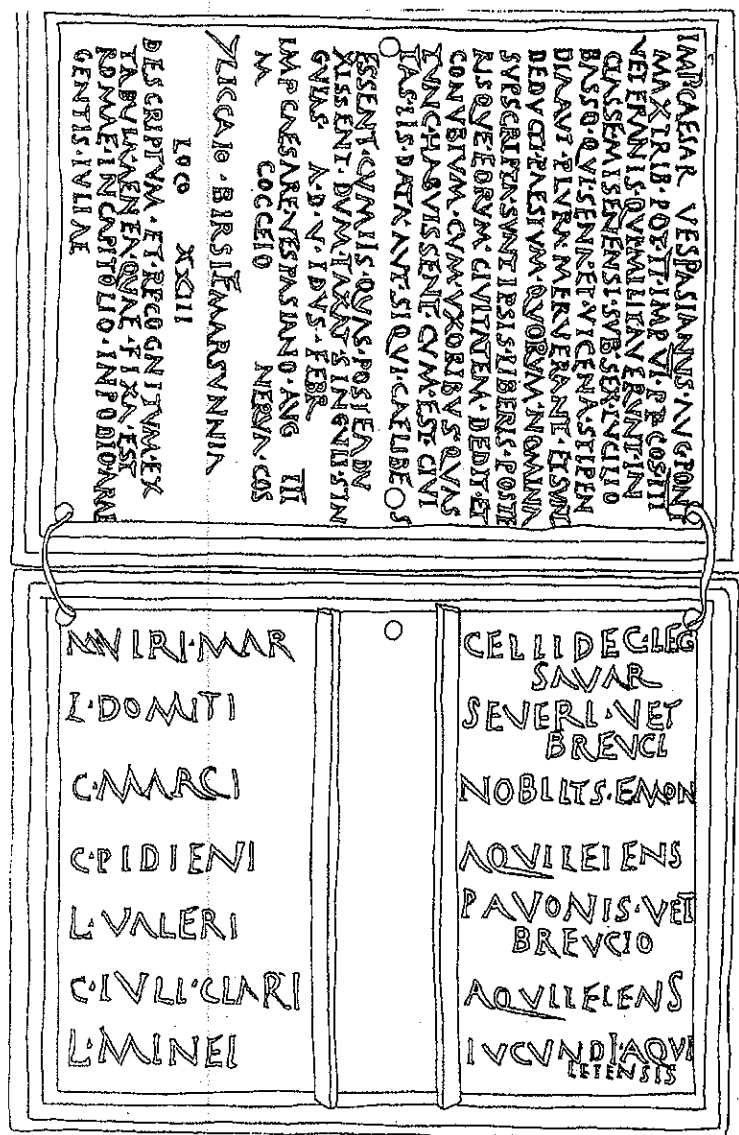 IMP·CAESAR VESPASIANVS·AVG·PONT
MAX·TRIB·POT·II·IMP·VI·P·P·COS·III
VETERANIS·QVI·MILITAVERVNT·IN
CLASSE·MISENENSI·SVB·SEX·LVCILIO
BASSO·QVI·SENA·ET·VICENA·STIPEN
DIA·AVT·PLVRA·MERVERANT·ET·SVNT
DEDVCTI·PAESTVM·QVORVM·NOMINA
SVPSCRIPTA·SVNT·IPSIS·LIBERIS·POSTE
RISQVE·EORVM·CIVITATEM·DEDIT·ET
CONVBIVM·CVM·VXORIBVS·QVAS
TVNC·HABVISSENT·CVM·EST·CIVI
TAS·IIS·DATA·AVT·SIQVI·CAELIBES
ESSENT·CVM·IIS·QVAS·POSTEA·DV
XISSENT·DVM·TAXAT·SINGVLI·SIN
GVLAS· A·D·V·IDVS·FEBR
IMP·CAESARE·VESPASIANO·AVG III
M COCCEIO NERVA·COS
7LICCAIO·BIRSI F MARSVNNIA
LOCO XXIII
DESCRIPTVM·ET·RECOGNITVM·EX
TABVLA·AENEA·QVAE·FIXA·EST
ROMAE·IN·CAPITOLIO·IN·PODIO·ARAE
GENTIS·IVLIAE
NVIRI·MAR CELLI DEC·LEG
SAVAR
L·DOMITI SEVERI·VET
BREVCI
C·MARCI NOBILITS·EMON
C·PIDIENI AQVILEIENS
L·VALERI PAVONIS·VET
BREVCIO
C·IVLI·CLARI AQVILEIENS
L·MINEI IVCVNDI·AQVI
LEIENSIS